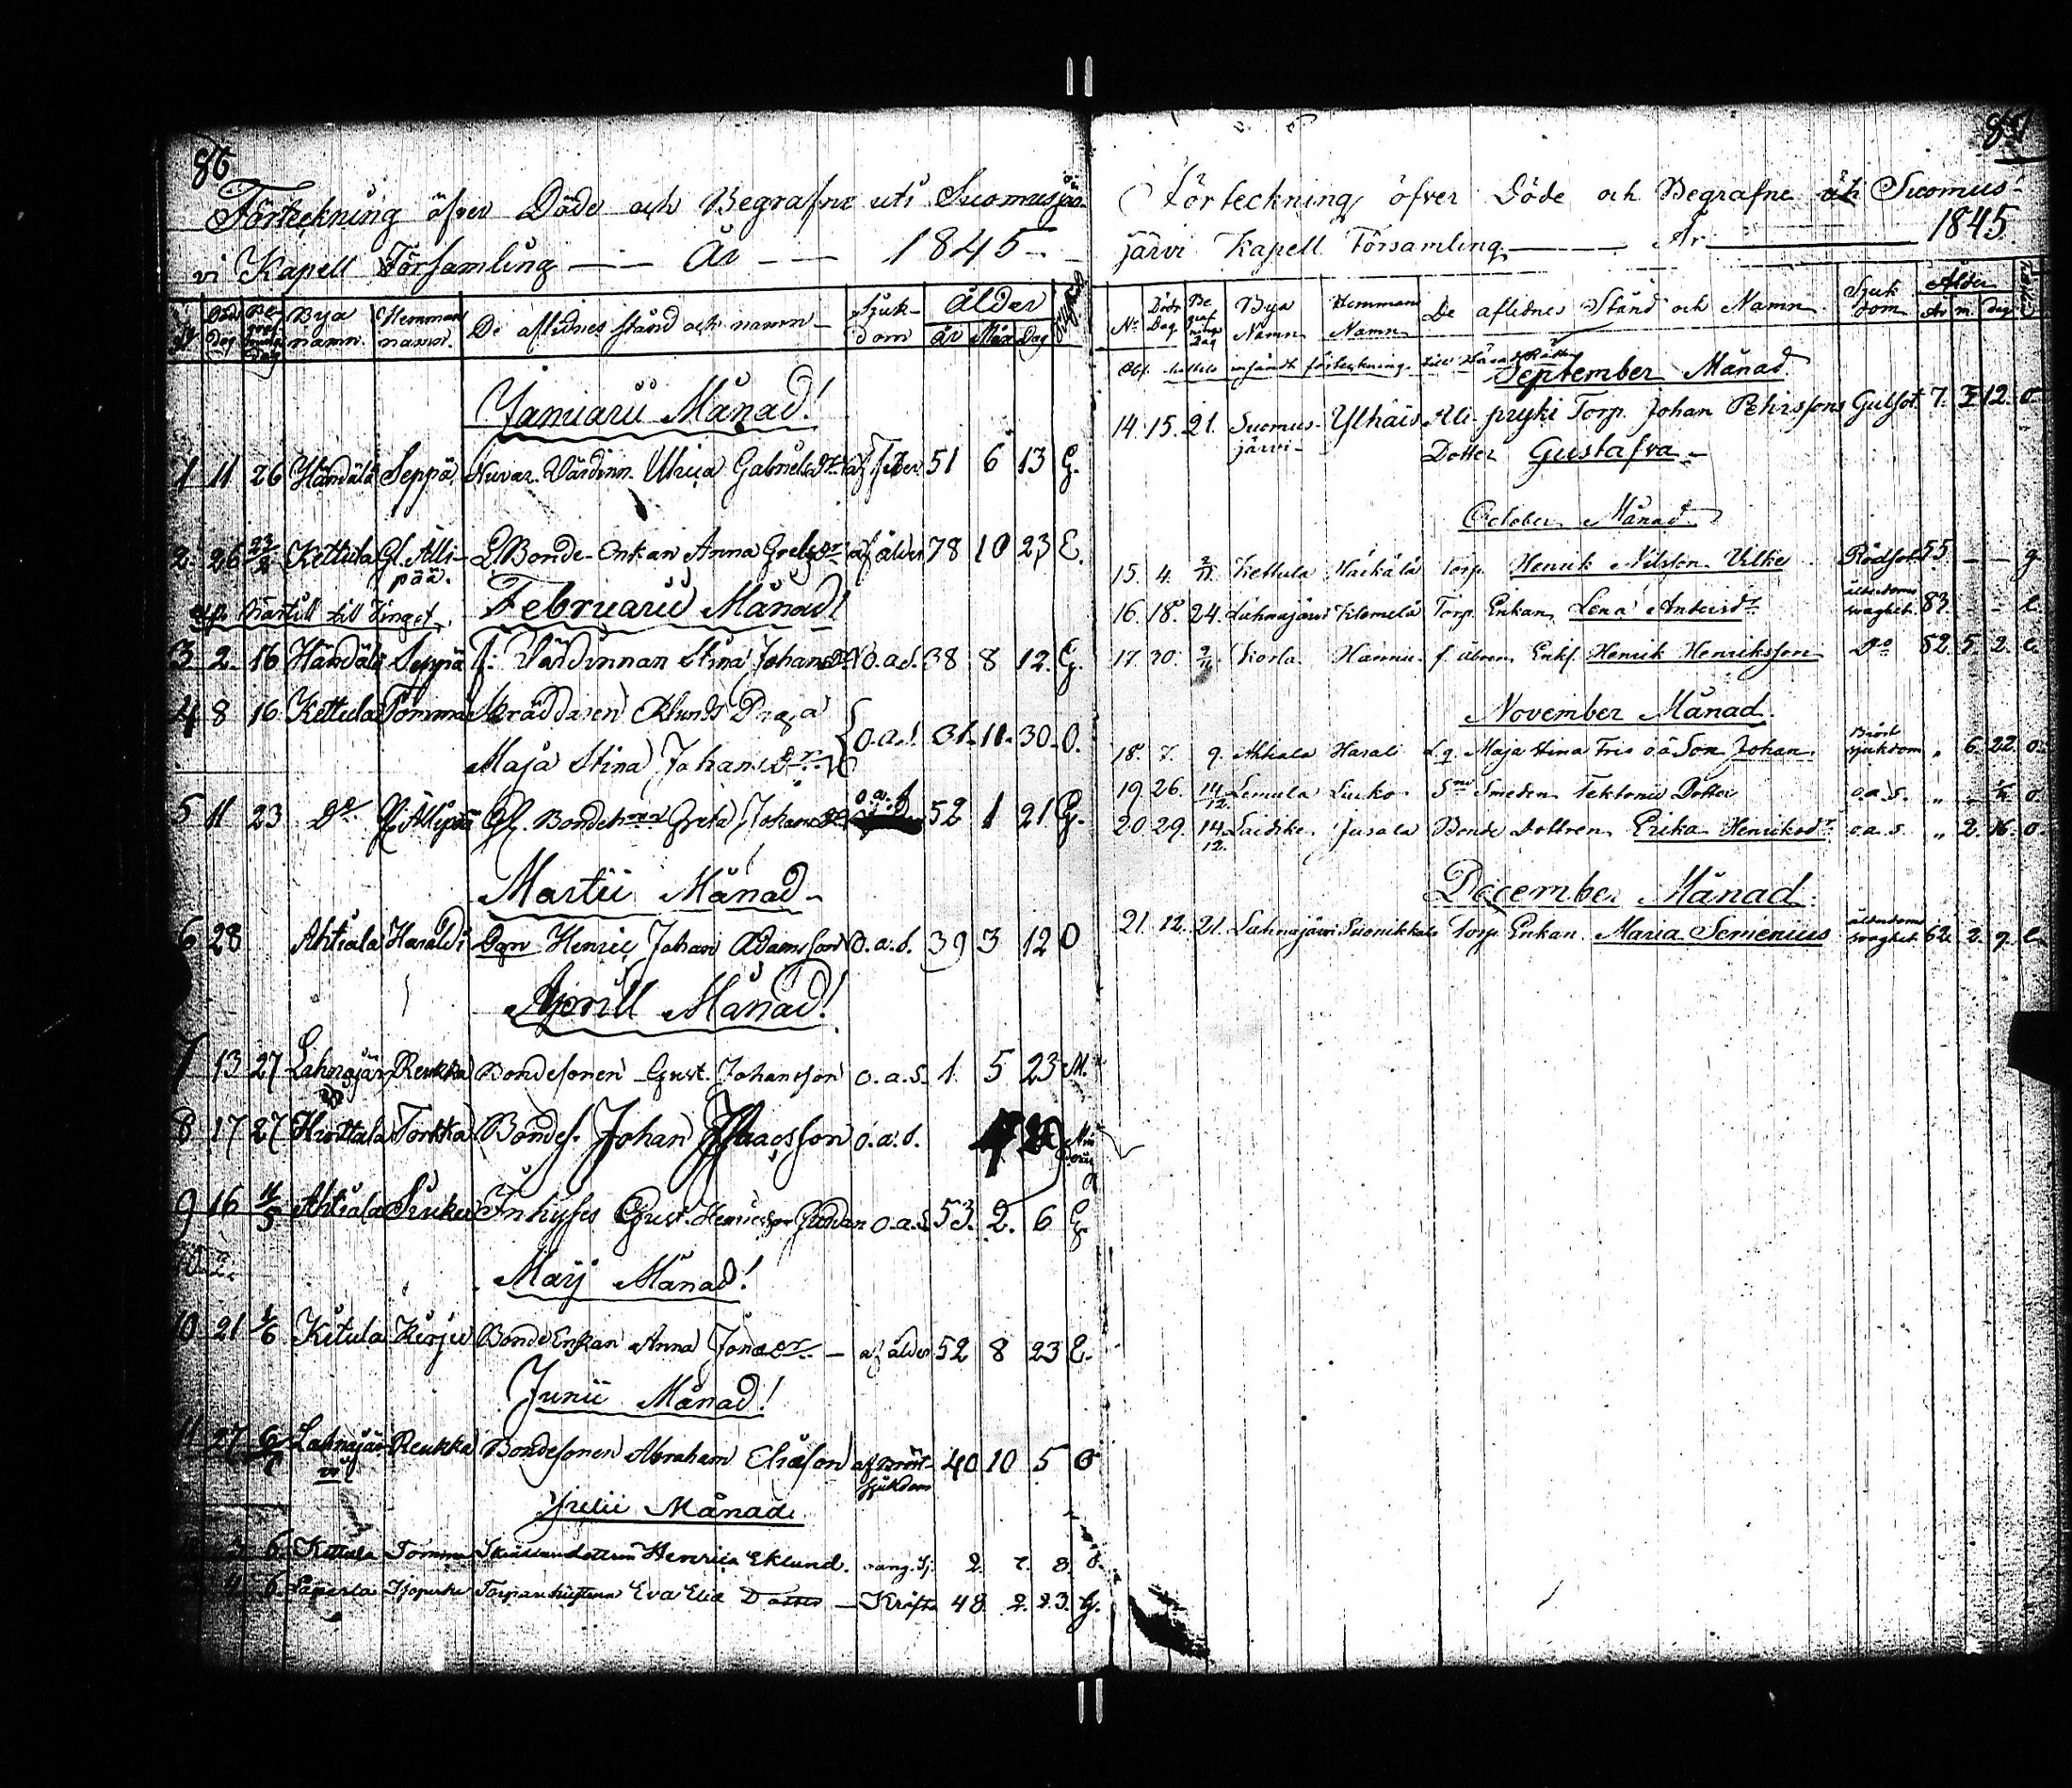 86
Förteckning öfver Döde och Begrafne uti Suomusjär-
vi Kapell Församling — — År — — 1845 —
No Död dag Begrafnings Dag Bya namn. Hemmans namn. De aflidnes stånd och namn — Sjuk-dom Ålder år Mån Dag
Januarii Månad!
1 11 26 Händälä Seppä Nuvar. Värdinn. Ulrica Gabrielsdr. af feber 51 6 13 G.
2. 26 23/2 Kettula Gl. Alli-pää. Bonde-Enkan Anna Grelsdr. af ålder 78 10 23 E.
till Tinget. Februarii Månad!
3 2 16 Händälä Seppä f. Värdinnan Stina Johansdr. o.a.s. 38 8 12. G.
4 8 16. Kettula Tommi Skräddaren Eklunds Piga
Maja Stina Johansdr. o.a.s. 31. 11. 30. O.
5 11 23 Do Gl. Allipää Gl. Bondehun Greta Johansdr o.a.s 52 1 21 G.
Martii Månad —
6 28 Ahtiala Haraldi Dgn Henric Johan Adamsson o.a.s. 39 3 12 O
Aprill Månad!
7 13 27 Lahnajärvi Reukka Bondesonen Gust. Johansson o.a.s. 1. 5 23 M.
8 17 27 Hiottala Torkka Bondes. Johan Isaacsson o.a.s.
9 16 11/5 Ahtiala Siuko Inhyses Gust. Henricsson Gubban o.a.s 53. 2. 6 G.
Maij Månad!
10 21 1/6 Kitula Kirju Bonde Enkan Anna Jonasdr. — af ålder 52 8 23 E.
Junii Månad!
11 27 Lahnajärvi Reukka Bondesonen Abraham Eliæson af Bröst-sjukdom 40 10 5 O
Julii Månad.
6. Kettula Tommi Henrica Eklund. 2. 7. 8. O.
4. 6. Laperla Torparehustrun Eva Elia Dotter — Kräfta 48. 2. 23. G.
87
Förteckning öfver Döde och Begrafne uti Suomus-
järvi Kapell Församling — — — År — — — 1845.
No Döds Dag Begrafnings Dag Bya Namn Hemmans Namn De aflidnes Stånd och Namn Sjuk dom Ålder År m. dag
insändt förteckning till Härads Rätten
September Månad
14. 15. 21. Suomus-järvi — Ylhäis Ali-pryki Torp. Johan Pehrssons Gulsot 7. 5 12. O
Dotter Gustafva —
October Månad
15. 4. 2/11 Kettula Härkälä Torp. Henrik Nilsson Vilke Rödsot 55. — — g
16. 18. 24. Lahnajärvi Kilomelä Torp. Enkan Lena Andersdr. ålderdoms svaghet 83. — e.
17. 30. 9/11 Korla. Hannu. f. åbon Enkl. Henrik Henriksson Do 82. 5. 2. e.
November Månad.
18. 7. 9. Ahtiala Harali Lq. Maja Stina Fris o.ä. Son Johan. Bröst sjukdom „ 6. 22. O.
19. 26. 14/12. Lemula Liuko Sme Smeden Tektonii Dotter o.a.s. „ O.
20. 29. 14/12. Laidike Jusala Bonde dottren Erika Henriksdr. o.a.s. „ 2. 16. O
December Månad.
21. 12. 21. Lahnajärvi Suonikkala Torp. Enkan. Maria Semenius ålderdoms svaghet 62. 2. 9. e.